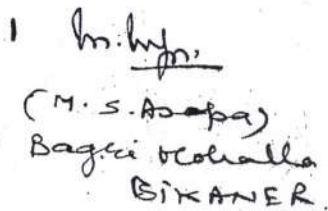 1
(M. S. Asopa)
Bagri Mohalla
BIKANER.